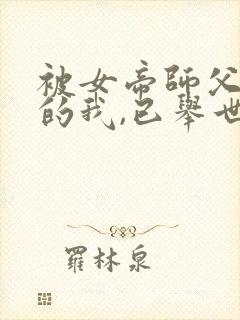 被女帝師父
的我,已舉世
羅林泉